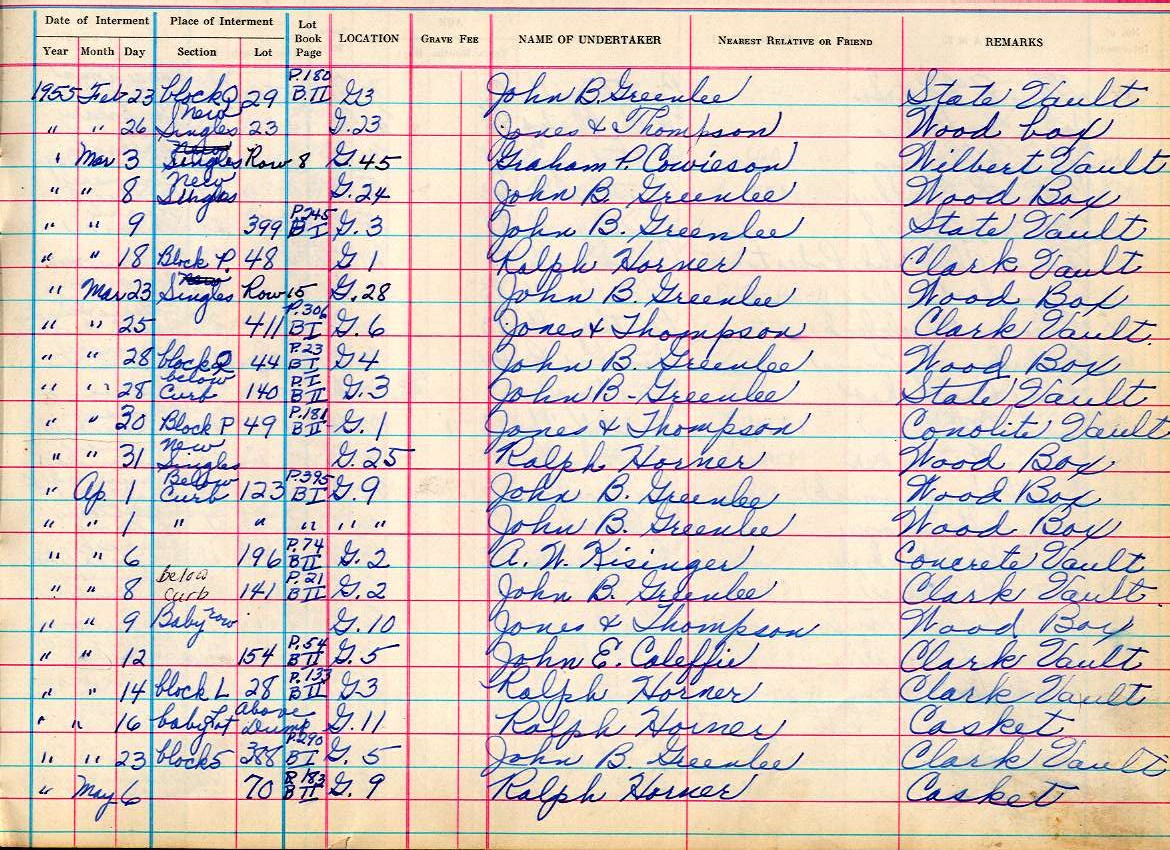 Date of Interment Place of Interment Lot Book Page LOCATION GRAVE FEE NAME OF UNDERTAKER NEAREST RELATIVE OR FRIEND REMARKS
Year Month Day Section Lot
1955 Feb 23 block Q 29 P.180 B.II G3 John B. Greenlee State Vault
" " 26 New Singles 23 G.23 Jones & Thompson Wood box
" Mar 3 Singles Row 8 G.45 Graham P. Cowieson Wilbert Vault
" " 8 New Singles G.24 John B. Greenlee Wood Box
" " 9 399 P.245 B I G.3 John B. Greenlee State Vault
" " 18 Block P. 48 G 1 Ralph Horner Clark Vault
" Mar 23 Singles Row 15 G.28 John B. Greenlee Wood Box
" " 25 411 P.306 B I G.6 Jones & Thompson Clark Vault.
" " 28 block Q 44 P.23 B I G4 John B. Greenlee Wood Box
" " 28 below Curb 140 P.I B II G.3 John B - Greenlee State Vault
" " 30 Block P 49 P.181 B II G.1 Jones & Thompson Conolite Vault
" " 31 New Singles G.25 Ralph Horner Wood Box
" Ap 1 Below Curb 123 P.395 B I G.9 John B. Greenlee Wood Box
" " 1 " " " " " John B. Greenlee Wood Box
" " 6 196 P.74 B II G.2 A. W. Kisinger Concrete Vault
" " 8 below curb 141 P.21 B II G.2 John B. Greenlee Clark Vault.
" " 9 Baby row G.10 Jones & Thompson Wood Box
" " 12 154 P.54 B II G.5 John E. Coleffie Clark Vault
" " 14 block L 28 P.133 B II G3 Ralph Horner Clark Vault
" " 16 baby Lt above Dump G.11 Ralph Horner Casket
" " 23 block 5 288 P.290 B I G.5 John B. Greenlee Clark Vault
" May 6 70 P.183 B II G.9 Ralph Horner Casket